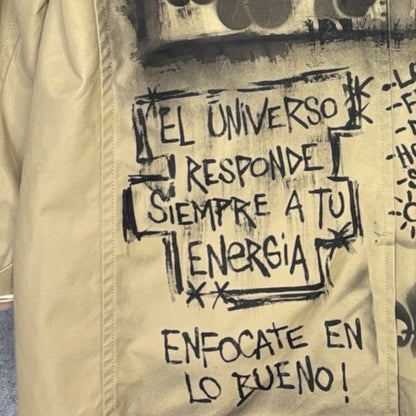 EL UNIVERSO
RESPONDE
SIEMPRE A TU
ENERGIA
ENFOCATE EN
LO BUENO!